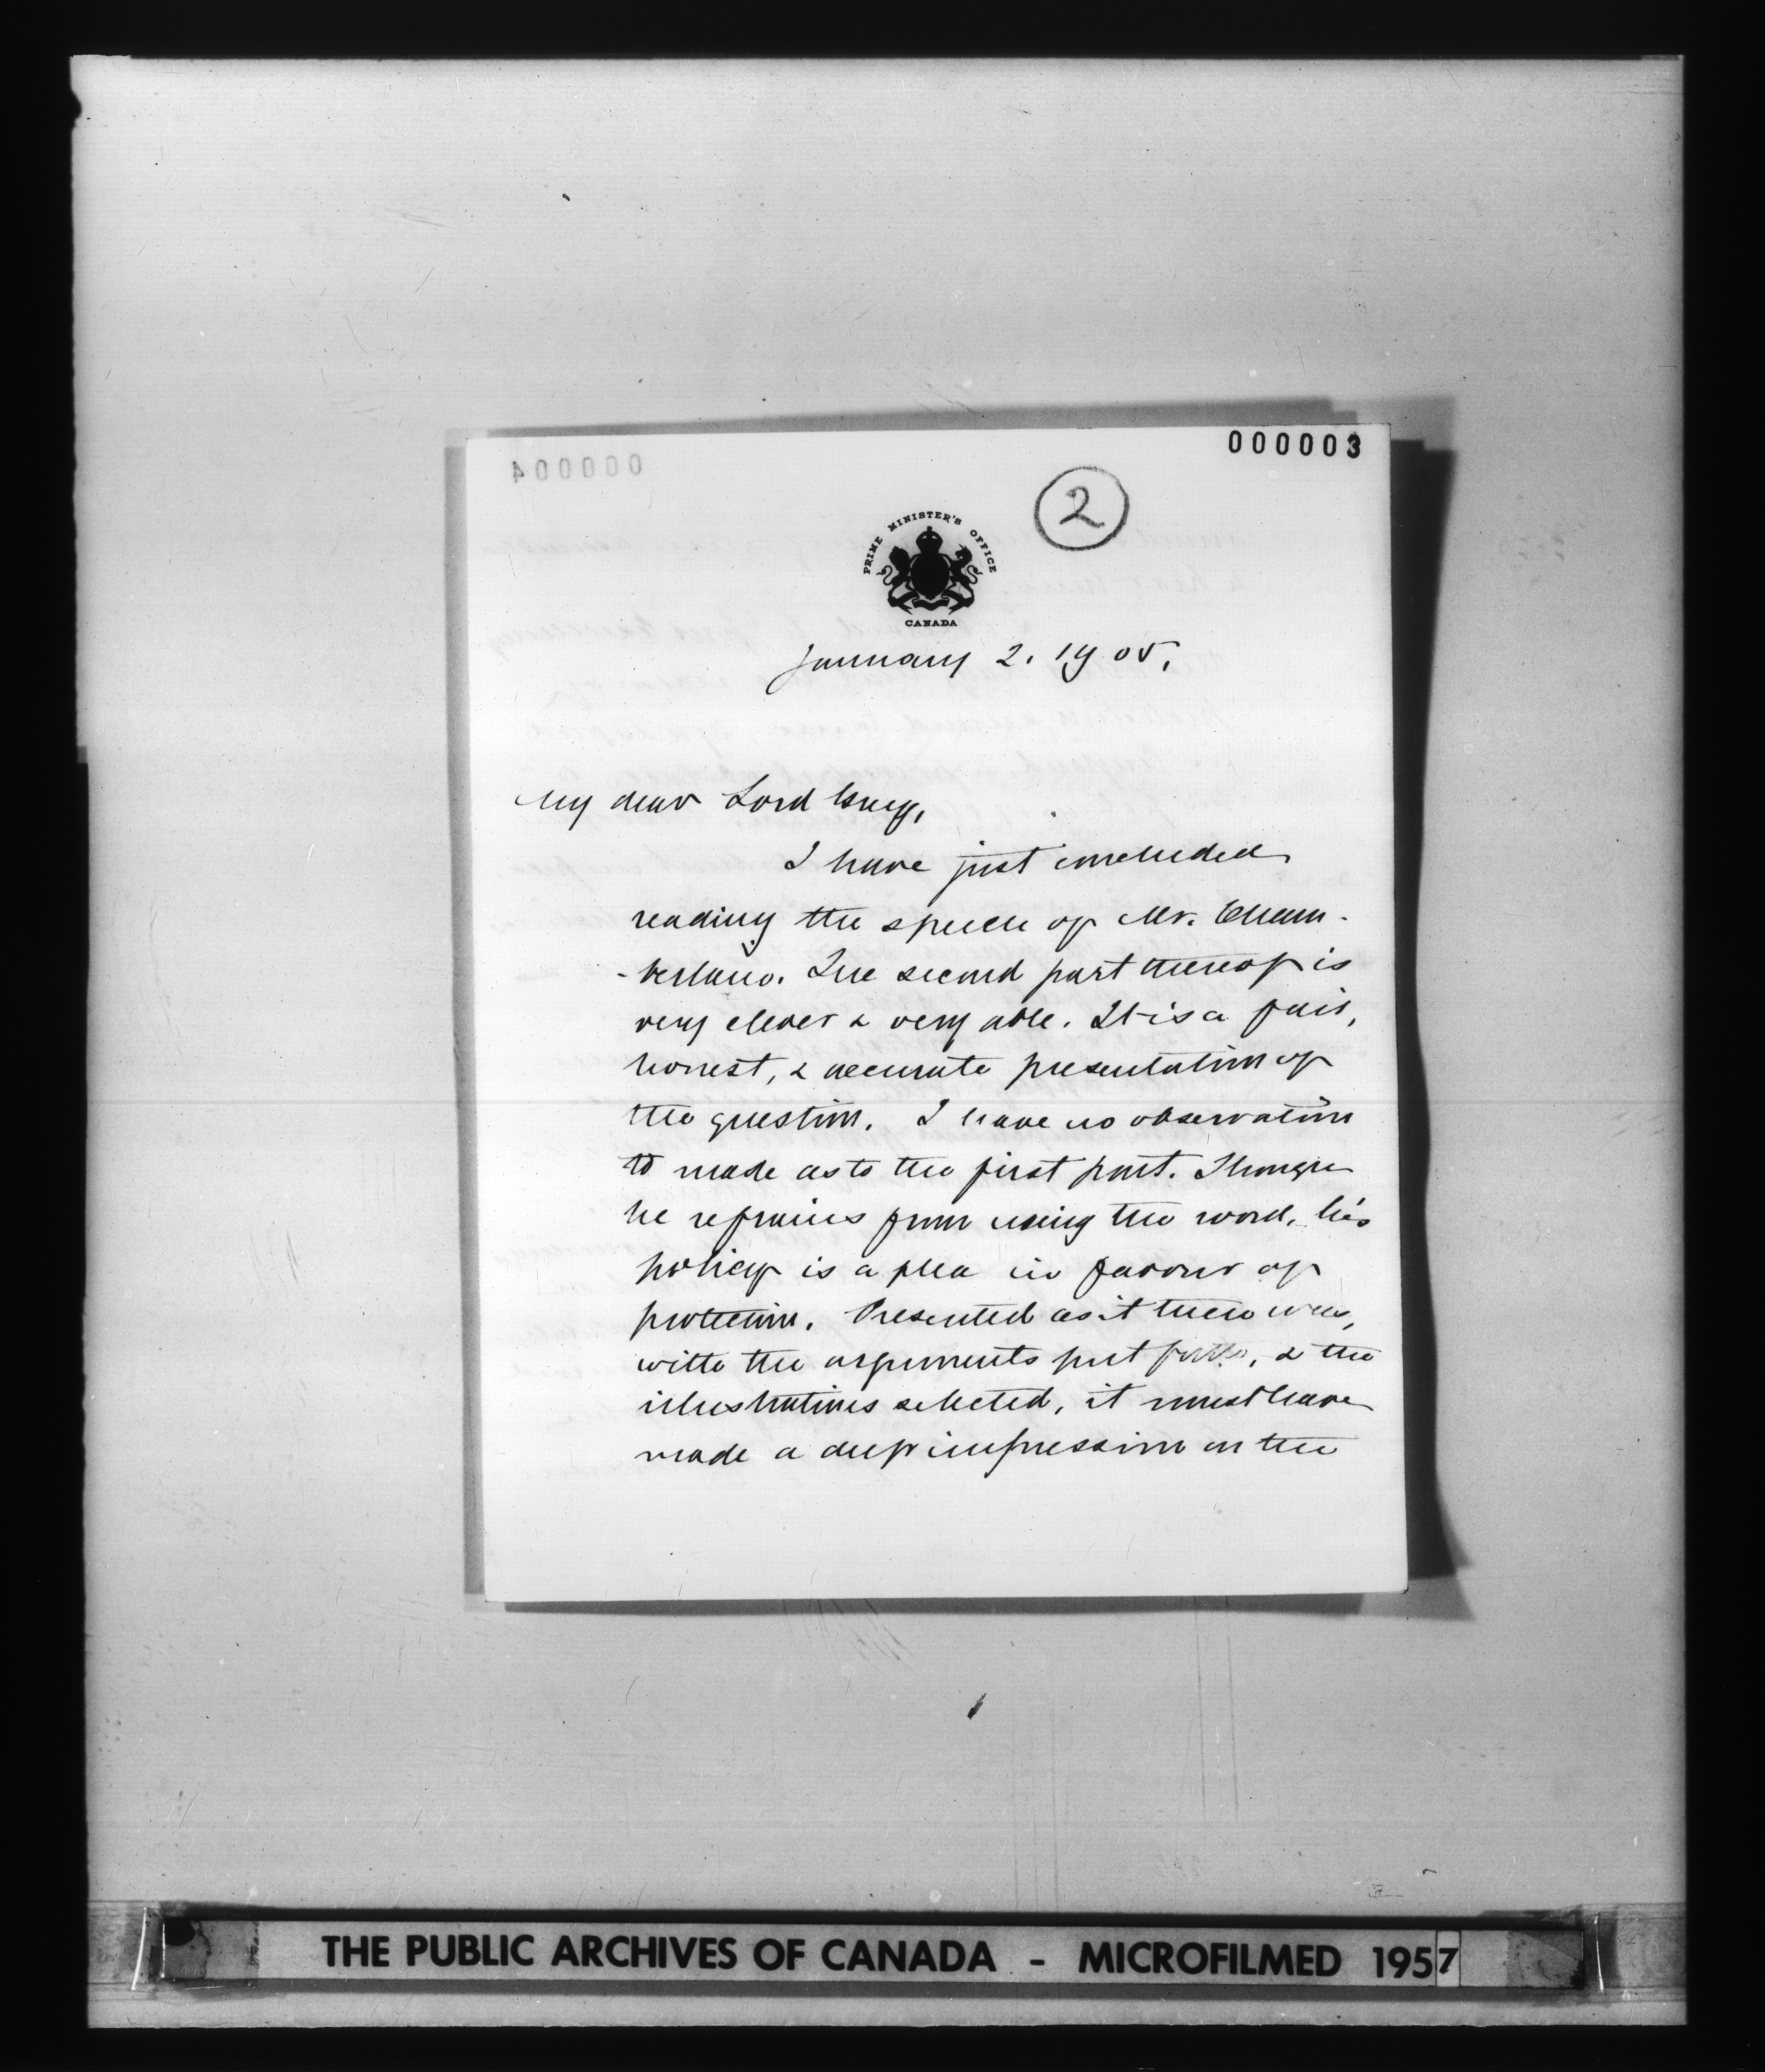 000003
000004
2
PRIME MINISTER'S OFFICE
CANADA
January 2. 1905.
My dear Lord Grey,
I have just concluded
reading the speech of Mr. Cham-
-berlain. The second part thereof is
very clever & very able. It is a fair,
honest, & accurate presentation of
the question. I have no observation
to made as to the first part. Though
he refrains from using the word, his
policy is a plea in favour of
protection. Presented as it there was,
with the arguments put forth, & the
illustrations selected, it must have
made a deep impression on the
THE PUBLIC ARCHIVES OF CANADA - MICROFILMED 1957